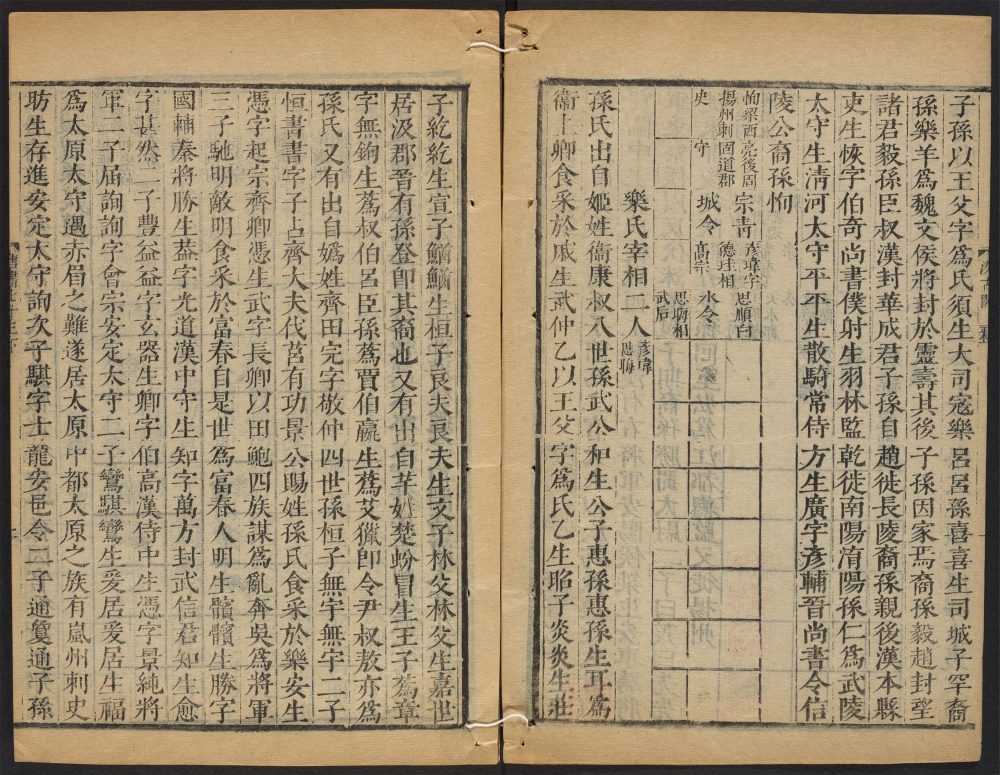 子孫以王父字爲氏須生大司寇樂呂呂孫喜喜生司城子罕裔
孫樂羊爲魏文侯將封於靈壽其後子孫因家焉裔孫毅趙封望
諸君毅孫臣叔漢封華成君子孫自趙徙長陵裔孫親後漢本縣
吏生恢字伯奇尚書僕射生羽林監乾徙南陽淯陽孫仁爲武陵
太守生淸河太守平平生散騎常侍方生廣字彥輔晉尚書令信
陵公裔孫恂
恂梁西亮後周宗靑彥瑋字思順白
揚州刺固道郡德珪相水令
史守城令高宗思晦相
武后
樂氏宰相二人彥瑋
思晦
孫氏出自姬姓衞康叔八世孫武公和生公子惠孫惠孫生耳爲
衞上卿食采於戚生武仲乙以王父字爲氏乙生昭子炎炎生莊
子紇紇生宣子鰌鰌生桓子良夫良夫生文子林父林父生嘉世
居汲郡晉有孫登卽其裔也又有出自芊姓楚蚡冒生王子蔿章
字無鉤生蔿叔伯呂臣孫蔿賈伯嬴生蔿艾獵卽令尹叔敖亦爲
孫氏又有出自嬀姓齊田完字敬仲四世孫桓子無宇無宇二子
恒書書字子占齊大夫伐莒有功景公賜姓孫氏食采於樂安生
憑字起宗齊卿憑生武字長卿以田鮑四族謀爲亂奔吳爲將軍
三子馳明敵明食采於富春自是世爲富春人明生臏臏生勝字
國輔秦將勝生葢字光道漢中守生知字萬方封武信君知生愈
字甚然二子豐益益字玄器生卿字伯高漢侍中生憑字景純將
軍二子屆詢詢字會宗安定太守二子鸞騏鸞生爰居爰居生福
爲太原太守遇赤眉之難遂居太原中都太原之族有嵐州刺史
昉生存進安定太守詢次子騏字士龍安邑令二子通夐通子孫